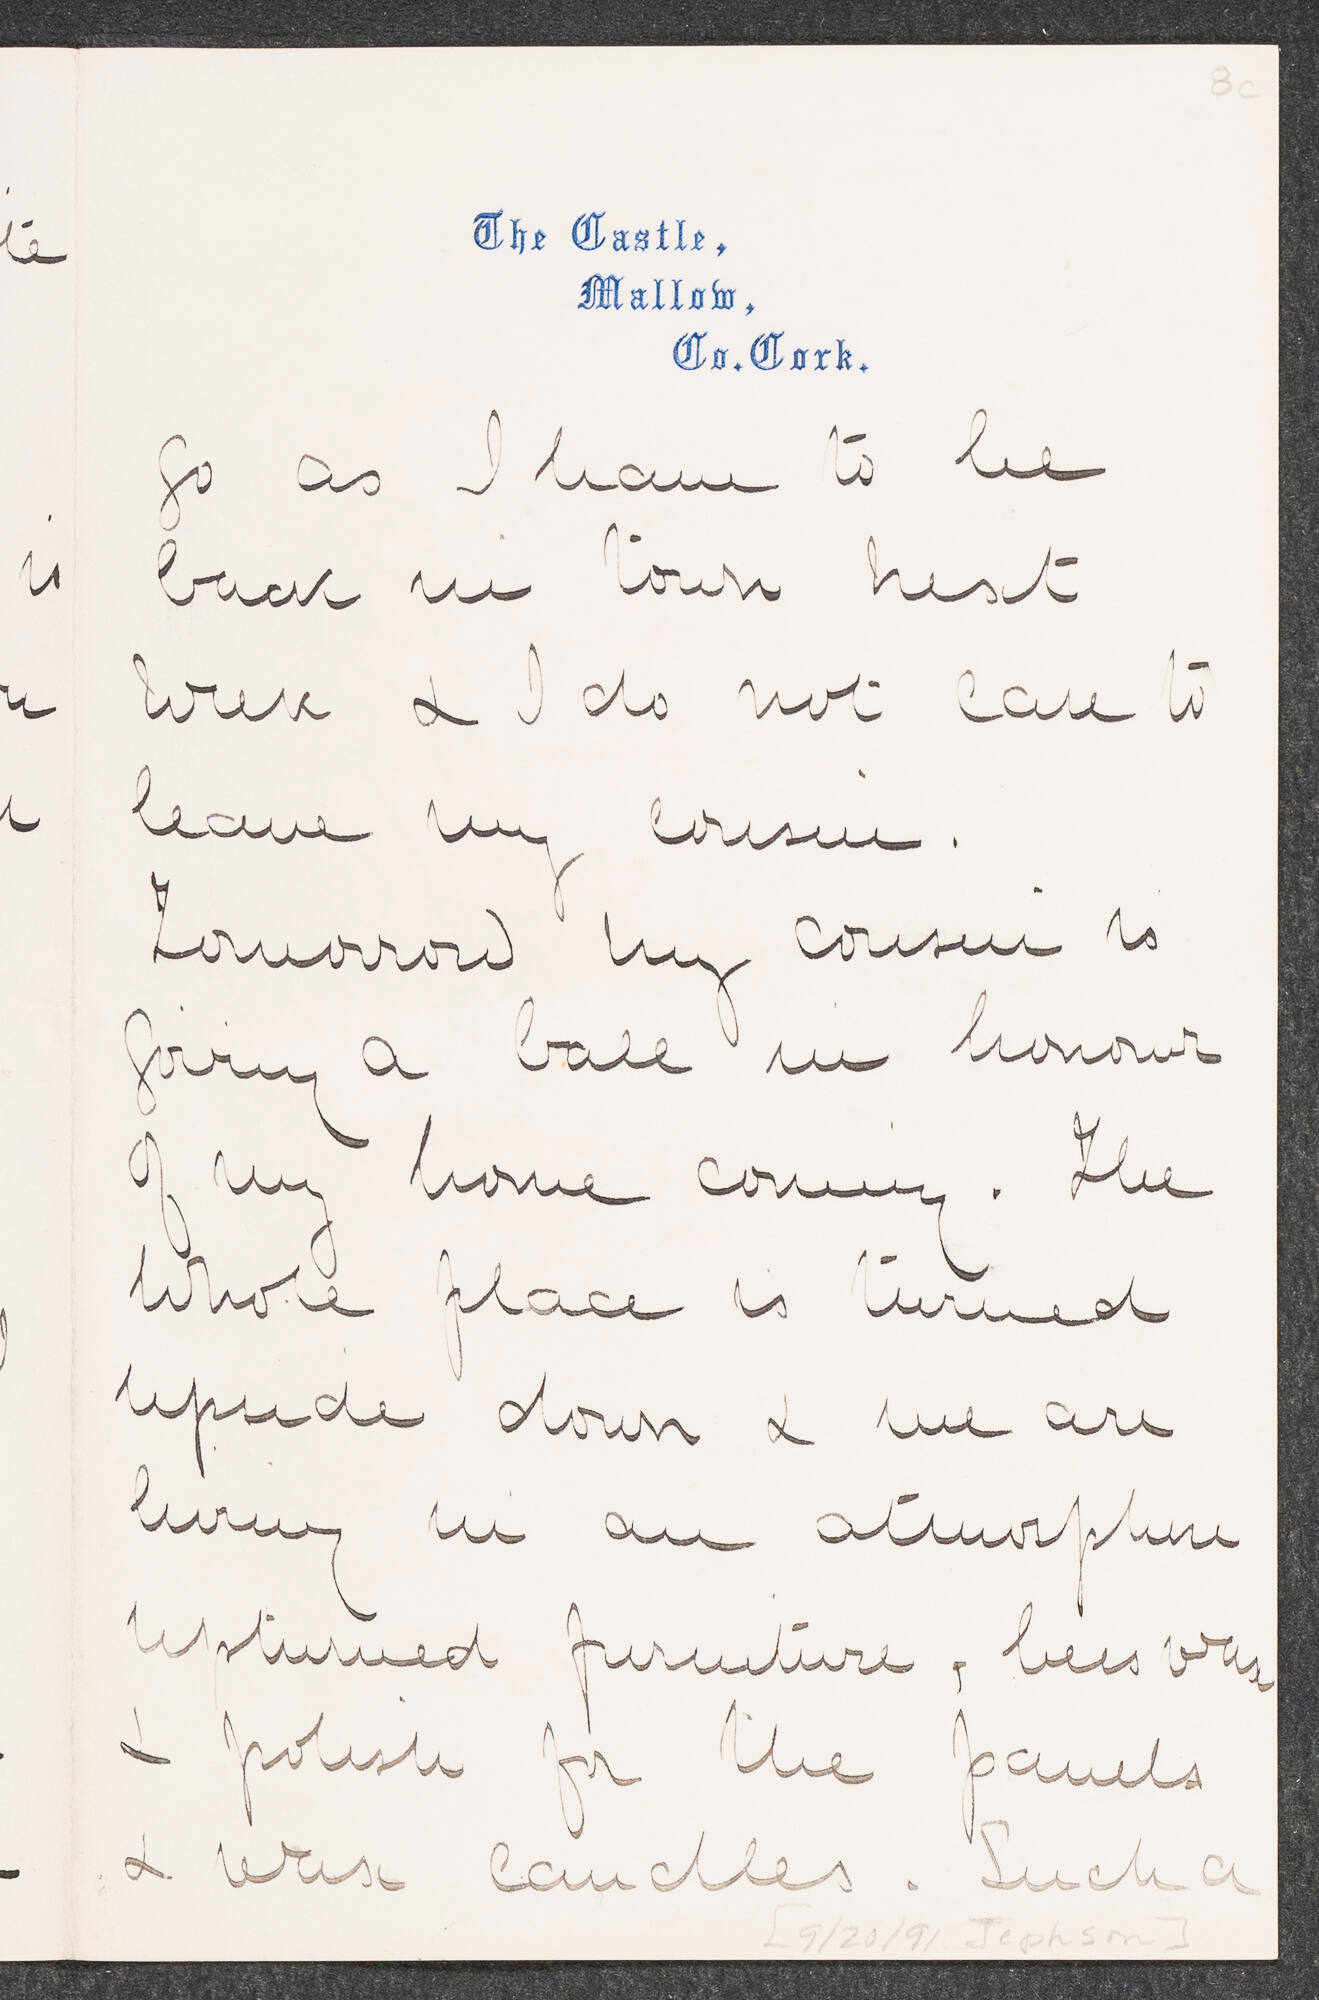 8c
The Castle,
Mallow,
Co. Cork.
go as I have to be
back in town next
week & I do not care to
leave my cousin.
Tomorrow my cousin is
giving a ball in honour
of my home coming. The
whole place is turned
upside down & we are
living in an atmosphere
upturned furniture, bees wax
& polish for the panels
& wax candles. Such a
[9/20/91 Jephson]